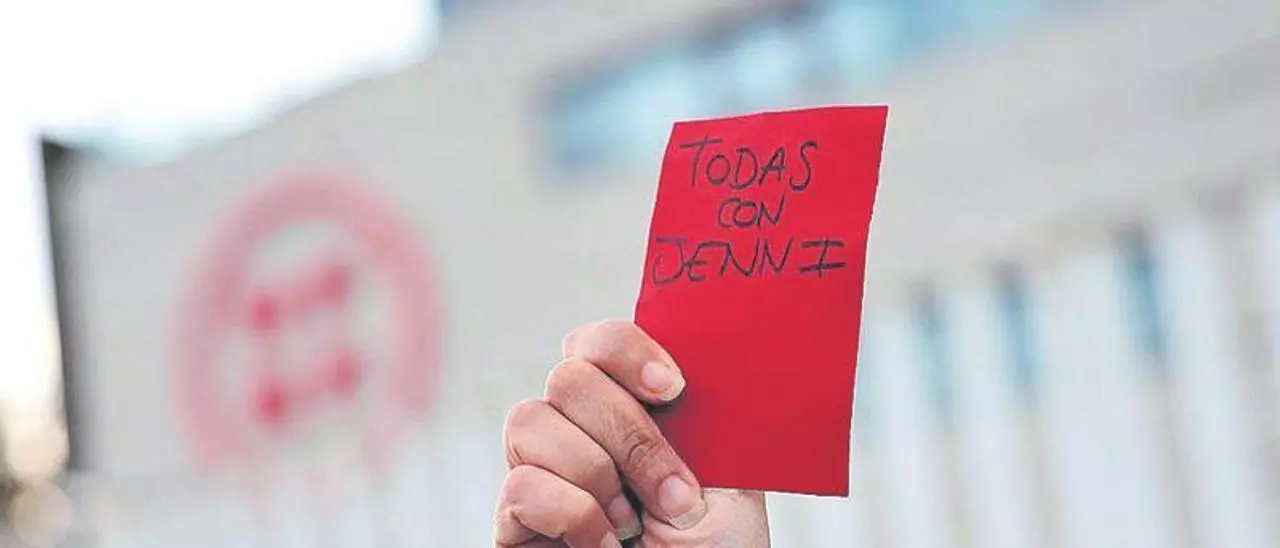 TODAS
CON
JENNI